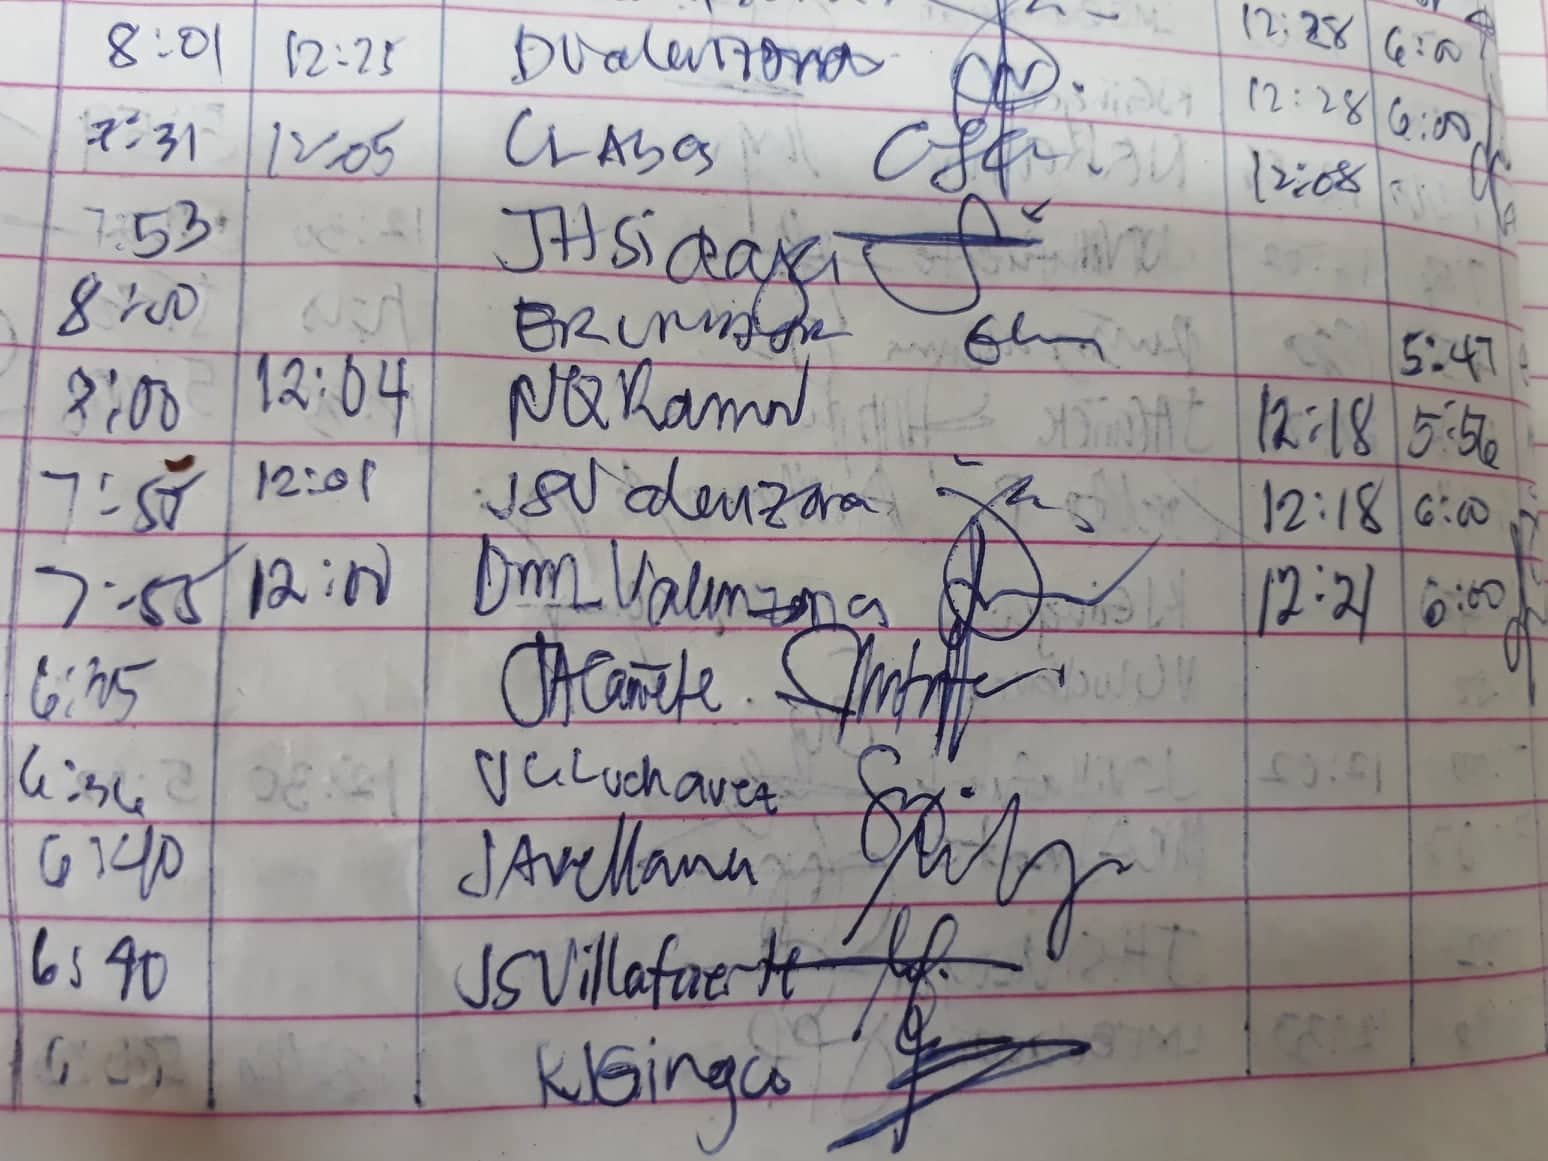 8:01 12:25 DValenzona 12:28 6:00
7:31 12:05 CLAbas 12:28 6:00
7:53 JHSidaya 12:08
8:00
8:00 12:04 NQRamol 5:47
7:55 12:01 JSValenzona 12:18 5:56
7:55 12:00 DmLValenzona 12:18 6:00
6:35 JACañete 12:21 6:00
6:36 VCLuchavez
6:40 JAvellana
6:40 JSVillafuerte
KJGingco